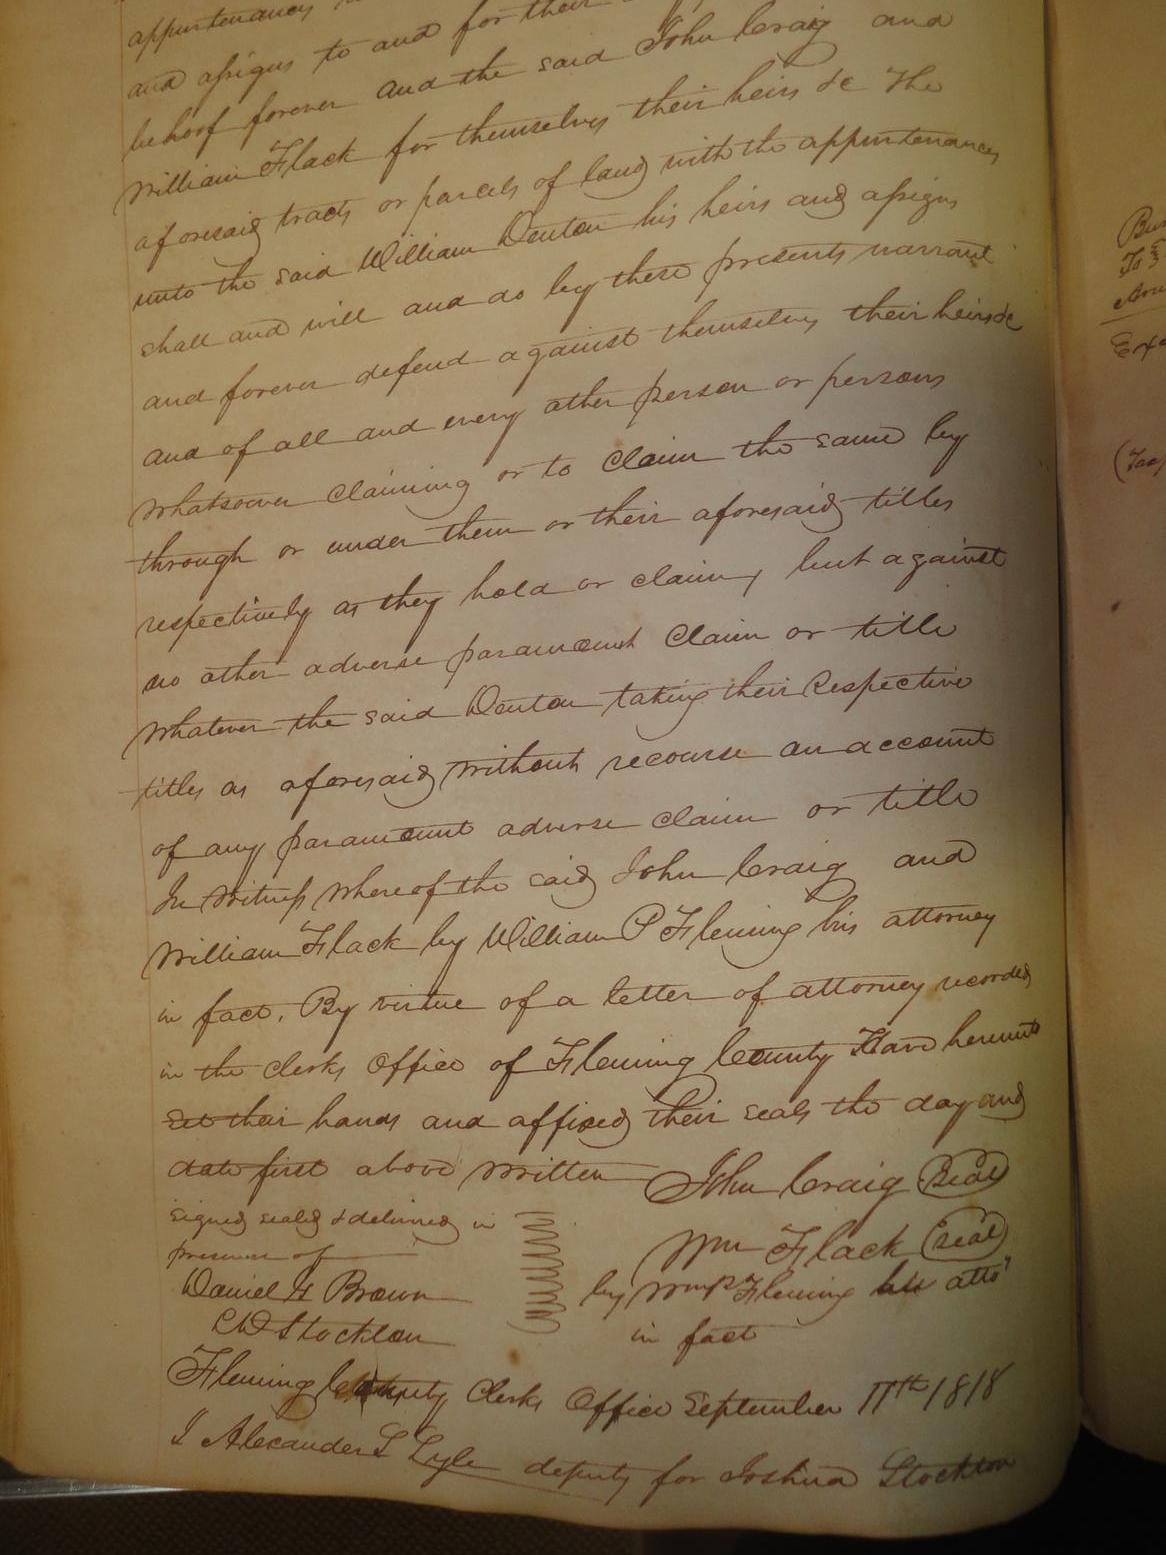 appurtenances
and assigns to and for their
behoof forever and the said John Craig and
William Flack for themselves their heirs &c The
aforesaid tracts or parcels of land with the appurtenances
unto the said William Denton his heirs and assigns
shall and will and do by these presents warrant
and forever defend against themselves their heirs &c
and of all and every other person or persons
whatsoever claiming or to claim the same by
through or under them or their aforesaid titles
respectively as they hold or claim, but against
no other adverse paramount claim or title
whatever the said Denton taking their respective
titles as aforesaid without recourse on account
of any paramount adverse claim or title
In Witness whereof the said John Craig and
William Flack by William P Fleming his attorney
in fact. By virtue of a letter of attorney recorded
in the clerks office of Fleming County Have hereunto
set their hands and affixed their seals the day and
date first above written John Craig (seal)
signed sealed & delivered in
presence of
Wm Flack (seal)
Daniel G Brown
by Wm P Fleming his atto
CD Stockton
in fact
Fleming County Clerks Office September 11th 1818
I Alexander S Lyle deputy for Joshua Stockton